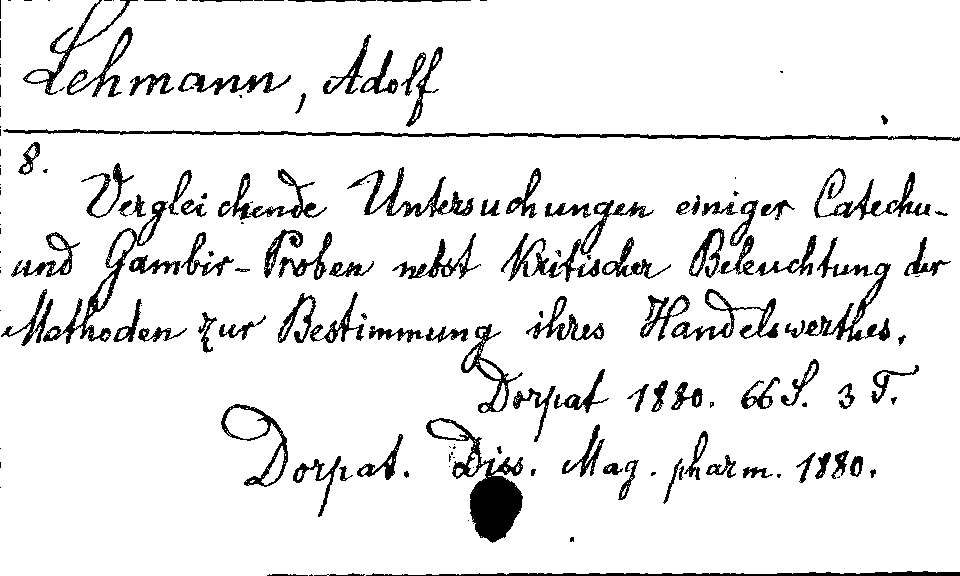 Lehmann, Adolf
8.
Vergleichende Untersuchungen einiger Catechu-
und Gambir-Proben nebst Kritischer Beleuchtung der
Methoden zur Bestimmung ihres Handelswerthes.
Dorpat 1880. 66 S. 3 T.
Dorpat. Diss. Mag. pharm. 1880.